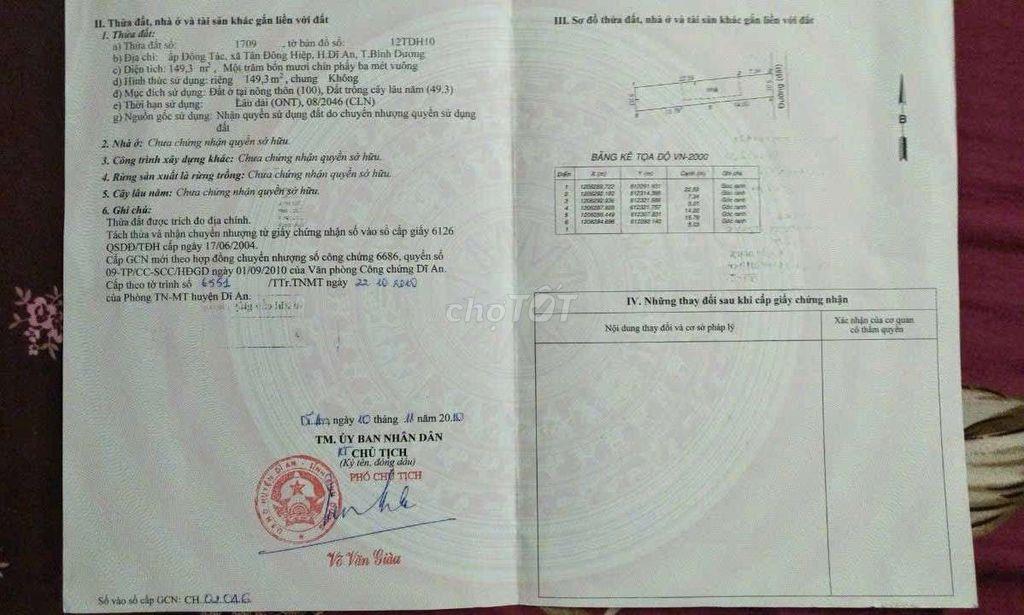 II. Thửa đất, nhà ở và tài sản khác gắn liền với đất
1. Thửa đất:
a) Thửa đất số: 1709 , tờ bản đồ số: 12TDH10
b) Địa chỉ: ấp Đông Tác, xã Tân Đông Hiệp, H.Dĩ An, T.Bình Dương
c) Diện tích: 149,3 m², Một trăm bốn mươi chín phẩy ba mét vuông
d) Hình thức sử dụng: riêng 149,3 m², chung Không
đ) Mục đích sử dụng: Đất ở tại nông thôn (100), Đất trồng cây lâu năm (49.3)
e) Thời hạn sử dụng: Lâu dài (ONT), 08/2046 (CLN)
g) Nguồn gốc sử dụng: Nhận quyền sử dụng đất do chuyển nhượng quyền sử dụng
đất
2. Nhà ở: Chưa chứng nhận quyền sở hữu.
3. Công trình xây dựng khác: Chưa chứng nhận quyền sở hữu.
4. Rừng sản xuất là rừng trồng: Chưa chứng nhận quyền sở hữu.
5. Cây lâu năm: Chưa chứng nhận quyền sở hữu.
6. Ghi chú:
Thửa đất được trích đo địa chính.
Tách thửa và nhận chuyển nhượng từ giấy chứng nhận số vào sổ cấp giấy 6126
QSDĐ/TĐH cấp ngày 17/06/2004.
Cấp GCN mới theo hợp đồng chuyển nhượng số công chứng 6686, quyển số
09-TP/CC-SCC/HĐGD ngày 01/09/2010 của Văn phòng Công chứng Dĩ An.
Cấp theo tờ trình số 6551 /TTr.TNMT ngày 22 10 2010
của Phòng TN-MT huyện Dĩ An.
Dĩ An, ngày 10 tháng 11 năm 2010
TM. ỦY BAN NHÂN DÂN
KT CHỦ TỊCH
(Ký tên, đóng dấu)
PHÓ CHỦ TỊCH
Võ Văn Giàu
Số vào sổ cấp GCN: CH
III. Sơ đồ thửa đất, nhà ở và tài sản khác gắn liền với đất
Đường (đất)
B
BẢNG KÊ TỌA ĐỘ VN-2000
Điểm X (m) Y (m) Cạnh (m) Ghi chú
1
2
3
4
5
6
1
Góc ranh
Góc ranh
Góc ranh
Góc ranh
Góc ranh
Góc ranh
chợTỐT
IV. Những thay đổi sau khi cấp giấy chứng nhận
Nội dung thay đổi và cơ sở pháp lý
Xác nhận của cơ quan
có thẩm quyền